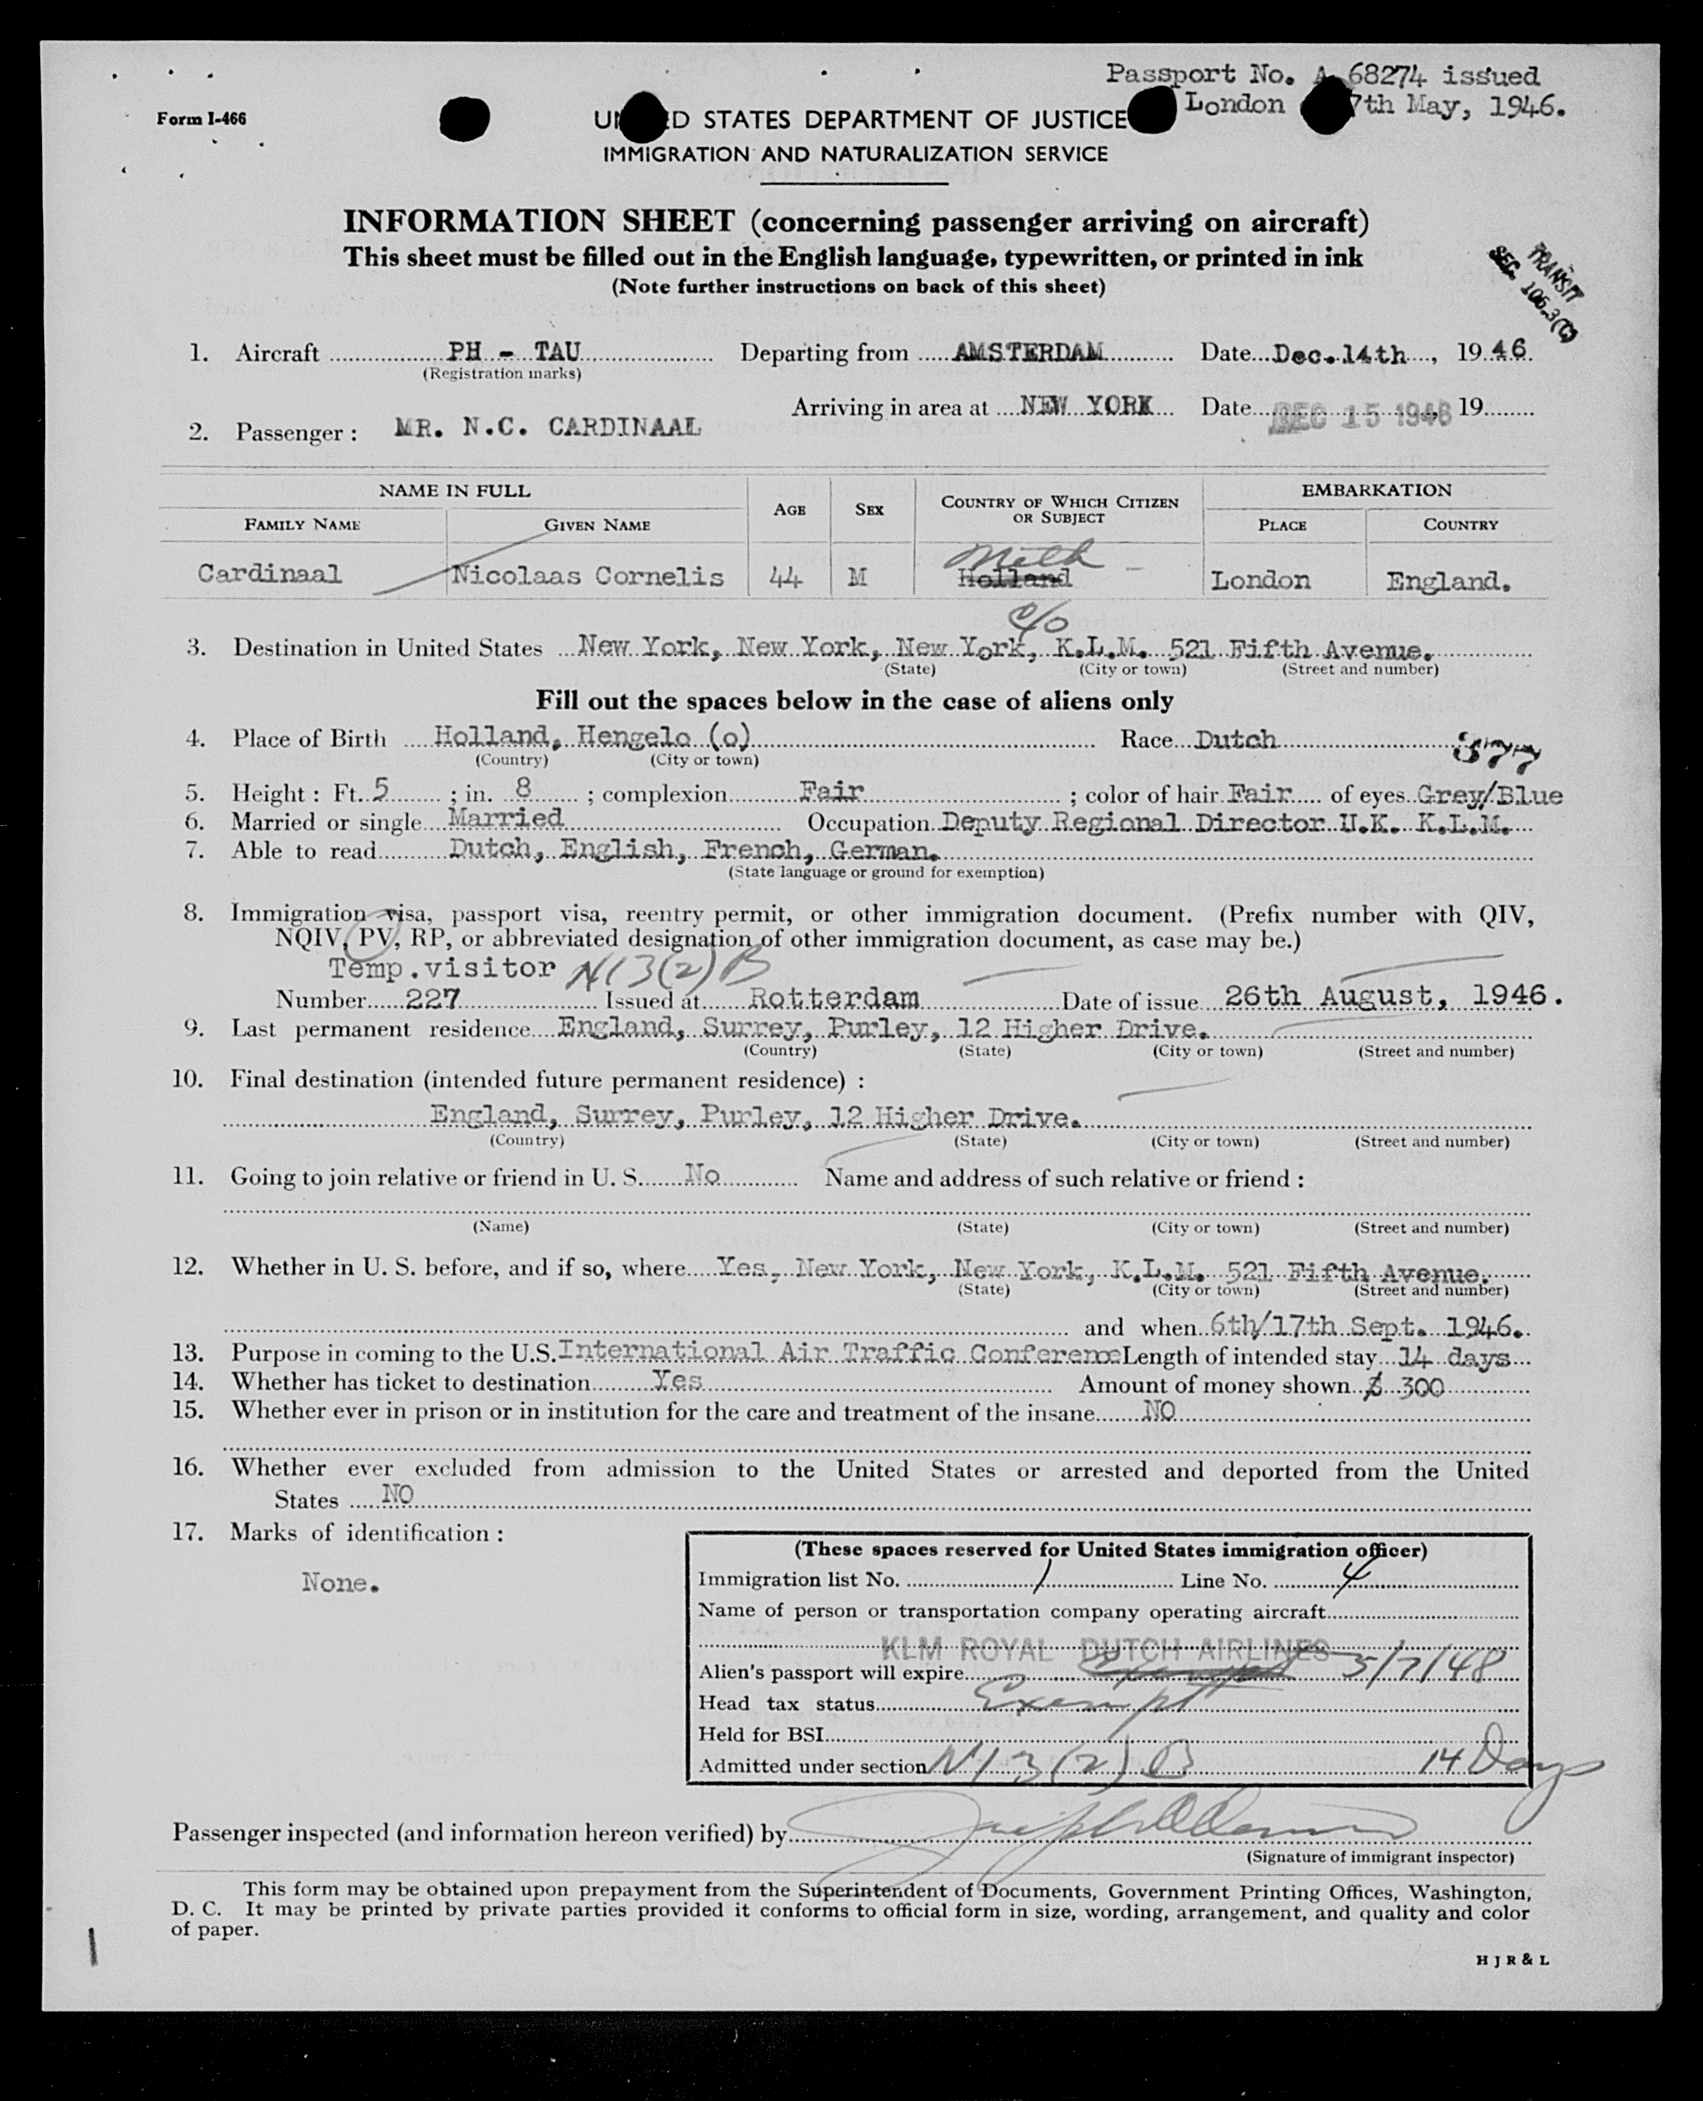 Passport No. A 68274 issued
London 7th May, 1946.
Form I-466
UNITED STATES DEPARTMENT OF JUSTICE
IMMIGRATION AND NATURALIZATION SERVICE
INFORMATION SHEET (concerning passenger arriving on aircraft)
This sheet must be filled out in the English language, typewritten, or printed in ink
(Note further instructions on back of this sheet)
TRANSIT
SEC. 106.3(C)
1. Aircraft PH - TAU Departing from AMSTERDAM Date Dec. 14th, 1946.
(Registration marks)
Arriving in area at NEW YORK Date DEC 15 1946, 19
2. Passenger : MR. N.C. CARDINAAL
NAME IN FULL AGE SEX COUNTRY OF WHICH CITIZEN OR SUBJECT EMBARKATION
FAMILY NAME GIVEN NAME PLACE COUNTRY
Neth -
Cardinaal Nicolaas Cornelis 44 M Holland London England.
c/o
3. Destination in United States New York, New York, New York, K.L.M. 521 Fifth Avenue.
(State) (City or town) (Street and number)
Fill out the spaces below in the case of aliens only
4. Place of Birth Holland, Hengelo (o) Race Dutch
(Country) (City or town)
377
5. Height : Ft. 5 ; in. 8 ; complexion Fair ; color of hair Fair of eyes Grey/Blue
6. Married or single Married Occupation Deputy Regional Director U.K. K.L.M.
7. Able to read Dutch, English, French, German.
(State language or ground for exemption)
8. Immigration visa, passport visa, reentry permit, or other immigration document. (Prefix number with QIV,
NQIV, PV, RP, or abbreviated designation of other immigration document, as case may be.)
Temp.visitor N 3(2) B
Number 227 Issued at Rotterdam Date of issue 26th August, 1946.
9. Last permanent residence England, Surrey, Purley, 12 Higher Drive.
(Country) (State) (City or town) (Street and number)
10. Final destination (intended future permanent residence) :
England, Surrey, Purley, 12 Higher Drive.
(Country) (State) (City or town) (Street and number)
11. Going to join relative or friend in U. S. No Name and address of such relative or friend :
(Name) (State) (City or town) (Street and number)
12. Whether in U. S. before, and if so, where Yes, New York, New York, K.L.M. 521 Fifth Avenue.
(State) (City or town) (Street and number)
and when 6th/17th Sept. 1946.
13. Purpose in coming to the U.S. International Air Traffic Conference Length of intended stay 14 days
14. Whether has ticket to destination Yes Amount of money shown $ 300
15. Whether ever in prison or in institution for the care and treatment of the insane NO
16. Whether ever excluded from admission to the United States or arrested and deported from the United
States NO
17. Marks of identification :
None.
(These spaces reserved for United States immigration officer)
Immigration list No. 1 Line No. 4
Name of person or transportation company operating aircraft
KLM ROYAL DUTCH AIRLINES
Alien's passport will expire 5/7/48
Head tax status Exempt
Held for BSI
Admitted under section N 3(2) B 14 Days
Passenger inspected (and information hereon verified) by
(Signature of immigrant inspector)
This form may be obtained upon prepayment from the Superintendent of Documents, Government Printing Offices, Washington,
D. C. It may be printed by private parties provided it conforms to official form in size, wording, arrangement, and quality and color
of paper.
H J R & L